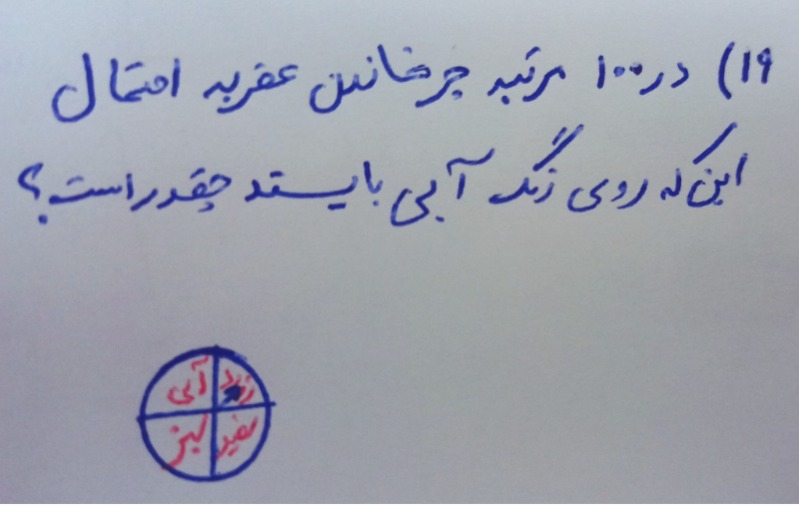 ۱۹) در ۱۰۰ مرتبه چرخاندن عقربه احتمال
این که روی رنگ آبی بایستد چقدر است؟
آبی زرد
سبز سفید